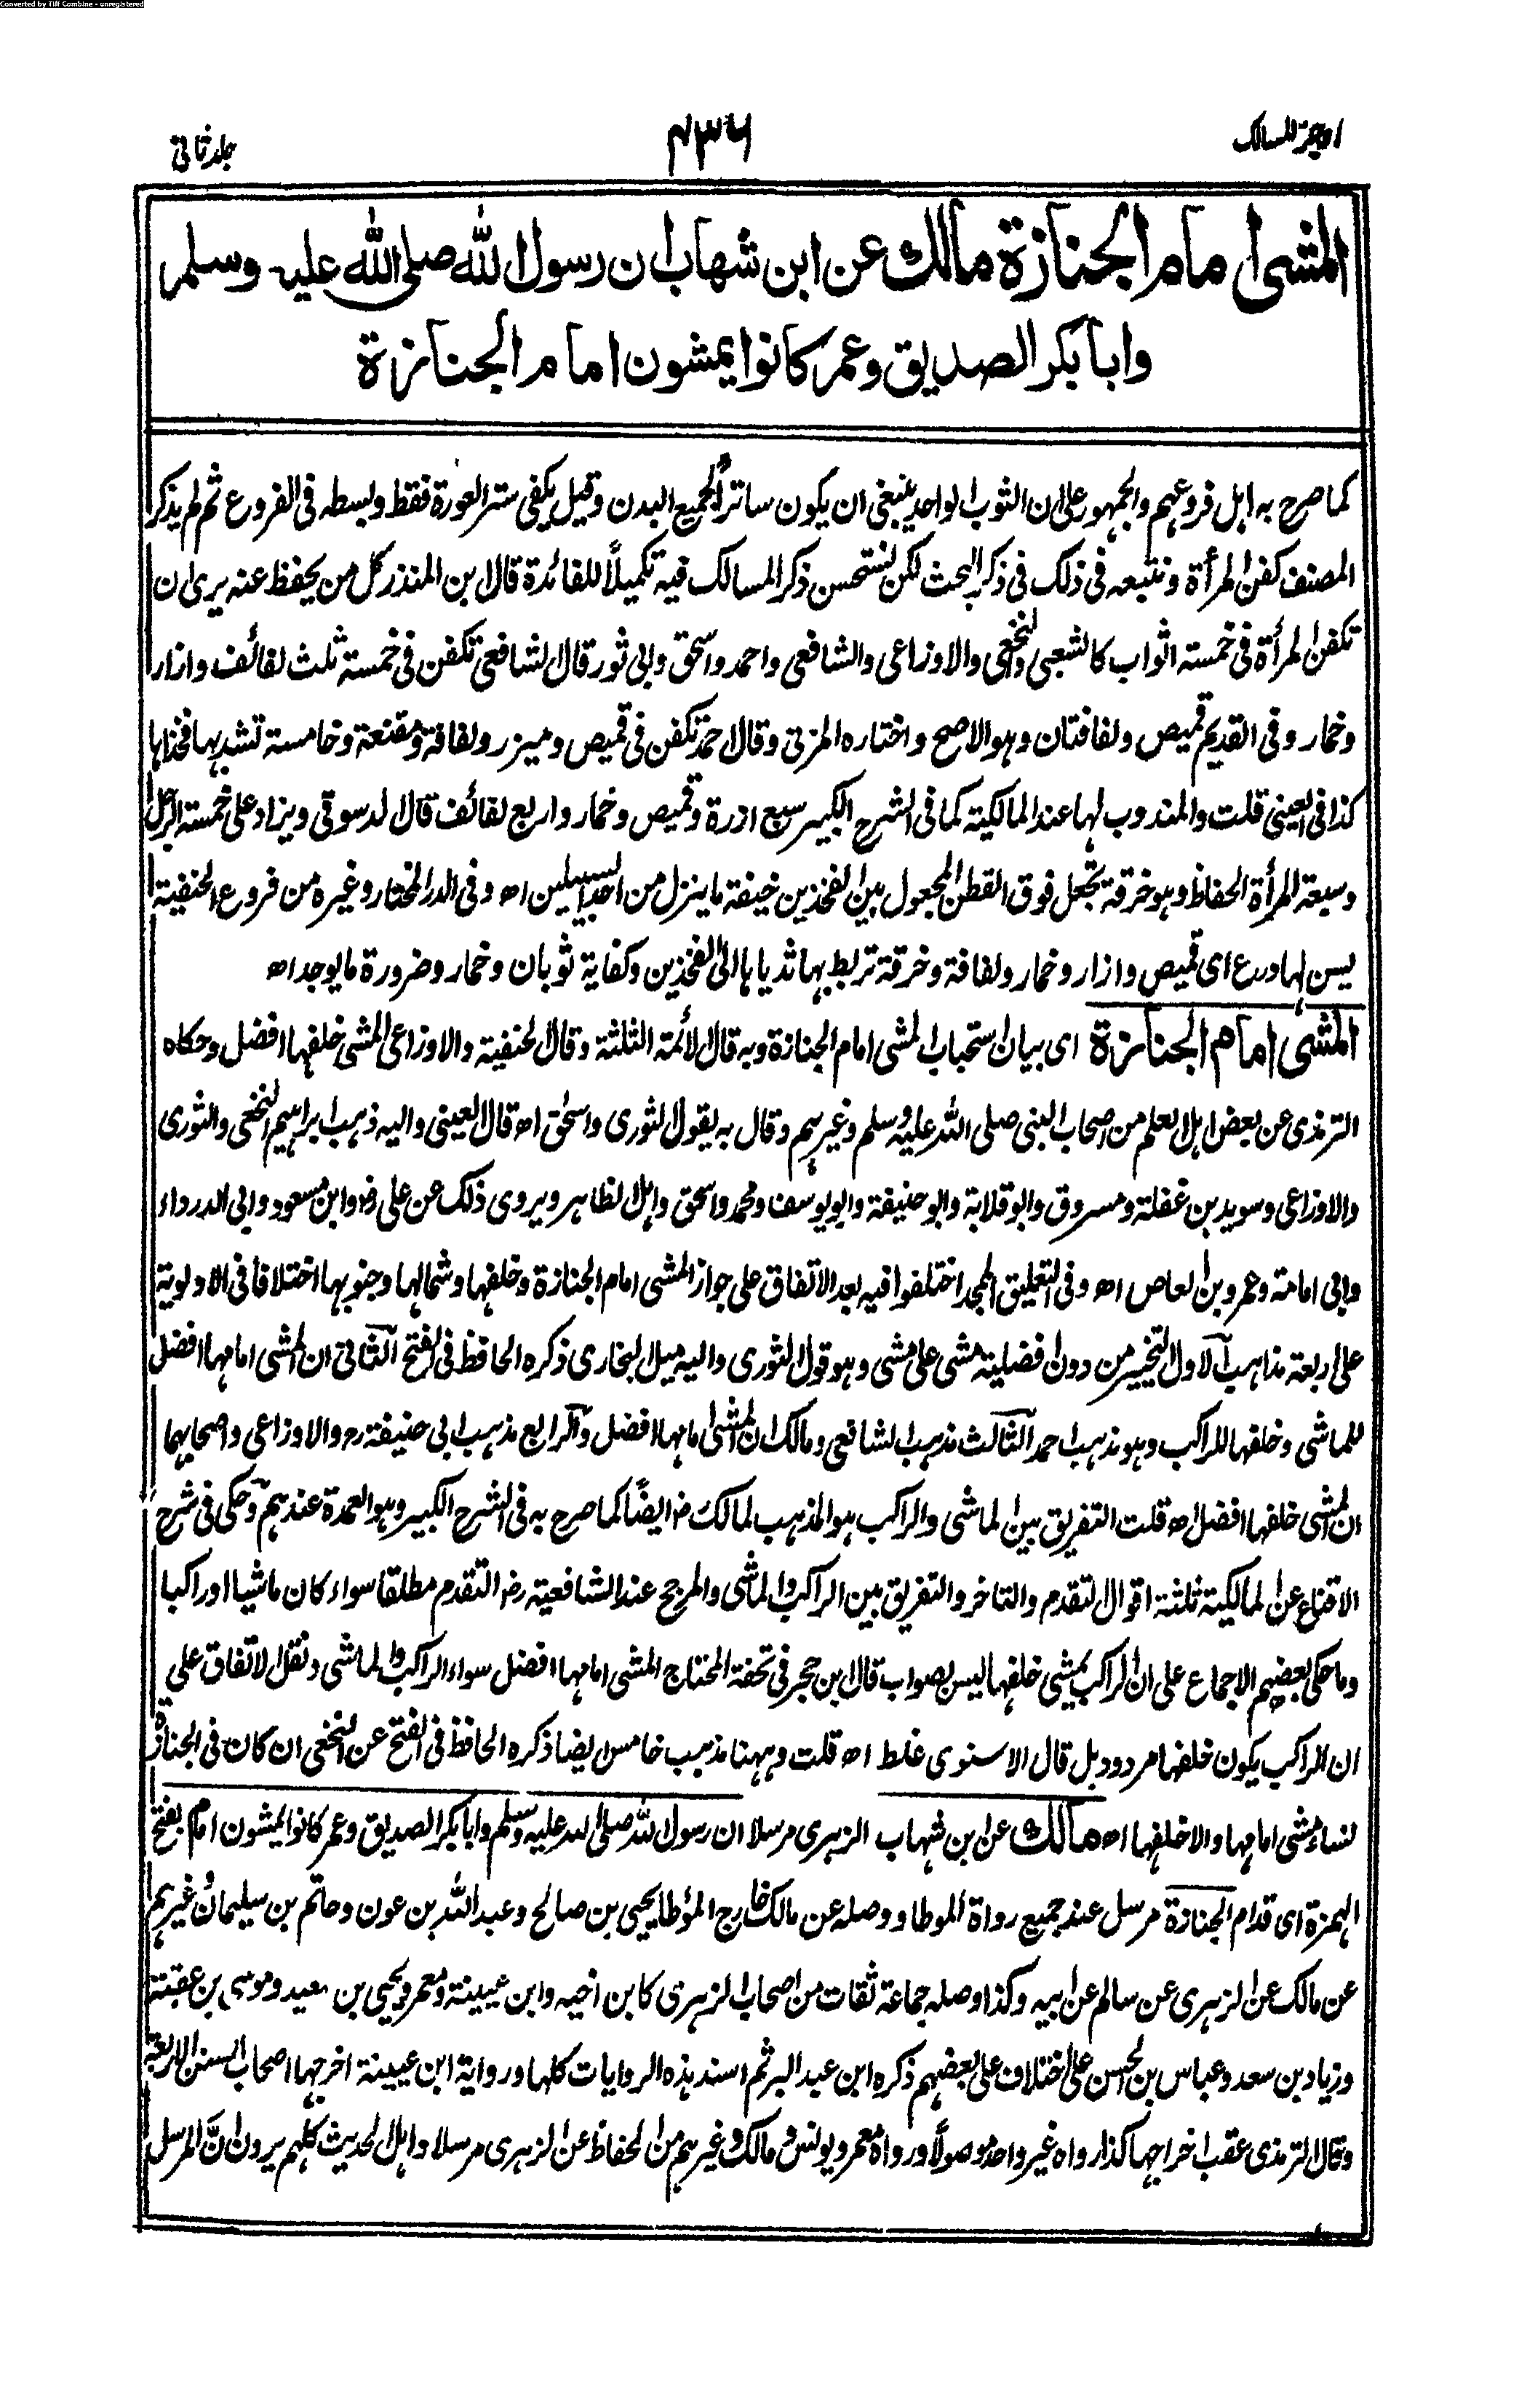 Converted by Tiff Combine - unregistered
اوجز المسالك
٤٣٦
جلد ثانی
المشی امام الجنازة مالك عن ابن شهاب ان رسول الله صلی الله علیه وسلم
وابا بكر الصدیق وعمر كانوا یمشون امام الجنازة
كما صرح به اهل فروعهم والجمهور علی ان الثوب الواحد ینبغی ان یكون ساترا لجمیع البدن وقیل یكفی ستر العورة فقط وبسطه فی الفروع ثم لم یذكر
المصنف كفن المرأة ونتبعه فی ذلك فی ذكر البحث لكن نستحسن ذكر المسالك فیه تكمیلاً للفائدة قال ابن المنذر كل من یحفظ عنه یری ان
تكفن المرأة فی خمسة اثواب كالشعبی والنخعی والاوزاعی والشافعی واحمد واسحق وابی ثور قال الشافعی تكفن فی خمسة ثلث لفائف وازار
وخمار وفی القدیم قمیص ولفافتان وهو الاصح واختاره المزنی وقال احمد تكفن فی قمیص ومیزر ولفافة ومقنعة وخامسة تشد بها فخذاها
كذا فی العینی قلت والمندوب لها عند المالكیة كما فی الشرح الكبیر سبع ازرة وقمیص وخمار واربع لفائف قال الدسوقی ویزاد علی خمسة الرجل
وسبعة المرأة الحفاظ وهو خرقة تجعل فوق القطن المجعول بین الفخذین خیفة ما ینزل من احد السبیلین اھ وفی الدر المختار وغیره من فروع الحنفیة
یسن لها درع ای قمیص وازار وخمار ولفافة وخرقة تربط بها ثدیاها الی الفخذین وكفایة ثوبان وخمار وضرورة ما یوجد اھ
المشی امام الجنازة ای بیان استحباب المشی امام الجنازة وبه قال الأئمة الثلثة وقال الحنفیة والاوزاعی المشی خلفها افضل وحكاه
الترمذی عن بعض اهل العلم من اصحاب النبی صلی الله علیه وسلم وغیرهم وقال به یقول الثوری واسحٰق اھ قال العینی والیه ذهب ابراهیم النخعی والثوری
والاوزاعی وسوید بن غفلة ومسروق وابو قلابة وابو حنیفة وابو یوسف ومحمد واسحق واهل الظاهر ویروی ذلك عن علی رض وابن مسعود وابی الدرداء
وابی امامة وعمرو بن العاص اھ وفی التعلیق الممجد اختلفوا فیه بعد الاتفاق علی جواز المشی امام الجنازة وخلفها وشمالها وجنوبها اختلافا فی الاولویة
علی اربعة مذاهب الاول التخییر من دون افضلیة مشی علی مشی وهو قول الثوری والیه میل البخاری ذكره الحافظ فی الفتح الثانی ان المشی امامها افضل
للماشی وخلفها للراكب وهو مذهب احمد الثالث مذهب الشافعی ومالك ان المشی امامها افضل والرابع مذهب ابی حنیفة رح والاوزاعی واصحابهما
ان المشی خلفها افضل اھ قلت التفریق بین الماشی والراكب هو المذهب لمالك رض ایضًا كما صرح به فی الشرح الكبیر وهو العمدة عندهم وحكی فی شرح
الاقناع عن المالكیة ثلثة اقوال التقدم والتاخر والتفریق بین الراكب والماشی والمرجح عند الشافعیة رض التقدم مطلقا سواء كان ماشیا اوراكبا
وما حكی بعضهم الاجماع علی ان الراكب یمشی خلفها لیس بصواب قال ابن حجر فی تحفة المحتاج المشی امامها افضل سواء الراكب والماشی ونقل الاتفاق علی
ان الراكب یكون خلفها مردود بل قال الاسنوی غلط اھ قلت وههنا مذهب خامس ایضا ذكره الحافظ فی الفتح عن النخعی ان كان فی الجنازة
نساء مشی امامها والا خلفها اھ مالك عن ابن شهاب الزهری مرسلا ان رسول الله صلی الله علیه وسلم وابا بكر الصدیق وعمر كانوا یمشون امام بفتح
الهمزة ای قدام الجنازة مرسل عند جمیع رواة الموطا ووصله عن مالك خارج المؤطا یحیی بن صالح وعبد الله بن عون وحاتم بن سلیمان وغیرهم
عن مالك عن الزهری عن سالم عن ابیه وكذا وصله جماعة ثقات من اصحاب الزهری كابن اخیه وابن عیینة ومعمر ویحیی بن سعید وموسی بن عقبة
وزیاد بن سعد وعباس بن الحسن علی اختلاف علی بعضهم ذكره ابن عبد البر ثم اسند هذه الروایات كلها وروایة ابن عیینة اخرجها اصحاب السنن الاربعة
وقال الترمذی عقب اخراجها كذا رواه غیر واحد موصولاً ورواه معمر ویونس ومالك وغیرهم من الحفاظ عن الزهری مرسلا واهل الحدیث كلهم یرون ان المرسل